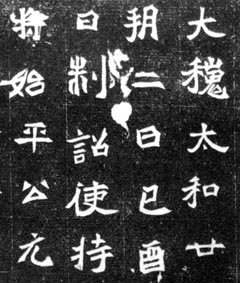 大魏太和廿
朔二日己酉
日制詔使持
將始平公元